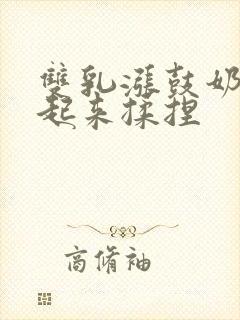 雙乳漲鼓奶
起来揉捏
商脩袖